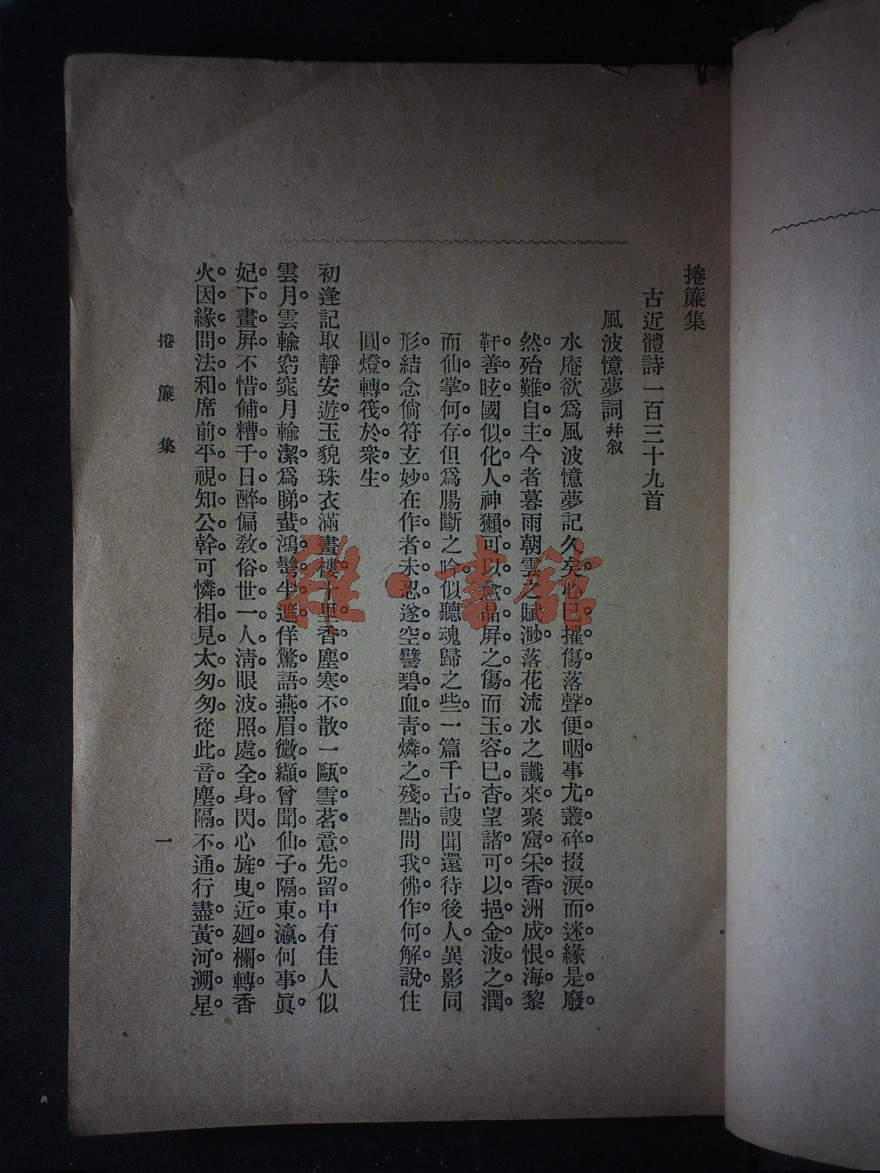 捲簾集
古近體詩一百三十九首
風波憶夢詞幷叙
水庵欲爲風波憶夢記久矣。心已摧傷落聲便咽事尤叢碎掇淚而迷緣是廢。
然。殆難自主今者暮雨朝雲之賦。渺落花流水之讖來聚窟。采香洲成恨海黎
軒善眩國似化人神獺。可以 晶屏之傷而玉容已杳。望諸可以挹金波之潤。
而仙掌何存。但爲腸斷之吟。似聽魂歸之些。一篇千古。謏聞還待後人。異影同
形。結念倘符玄妙在作者未忍遂空譬碧血靑燐之殘點。問我佛。作何解說。住
圓燈。轉筏於衆生。
初逢記取靜安遊。玉貌珠衣滿畫樓。十里香塵寒不散。一甌雪茗意先留。中有佳人似
雲月。雲輸窈窕月輸潔。爲睇蜚鴻鬢半遮。佯驚語燕眉微纈。曾聞仙子隔東瀛。何事眞
妃下畫屏。不惜餔糟千日醉。偏教俗世一人淸。眼波照處全身閃。心旌曳近廻欄轉。香
火因緣問法和。席前平視知公幹。可憐相見太匆匆。從此音塵隔不通。行盡黃河溯星
捲簾集
一
雜·書館